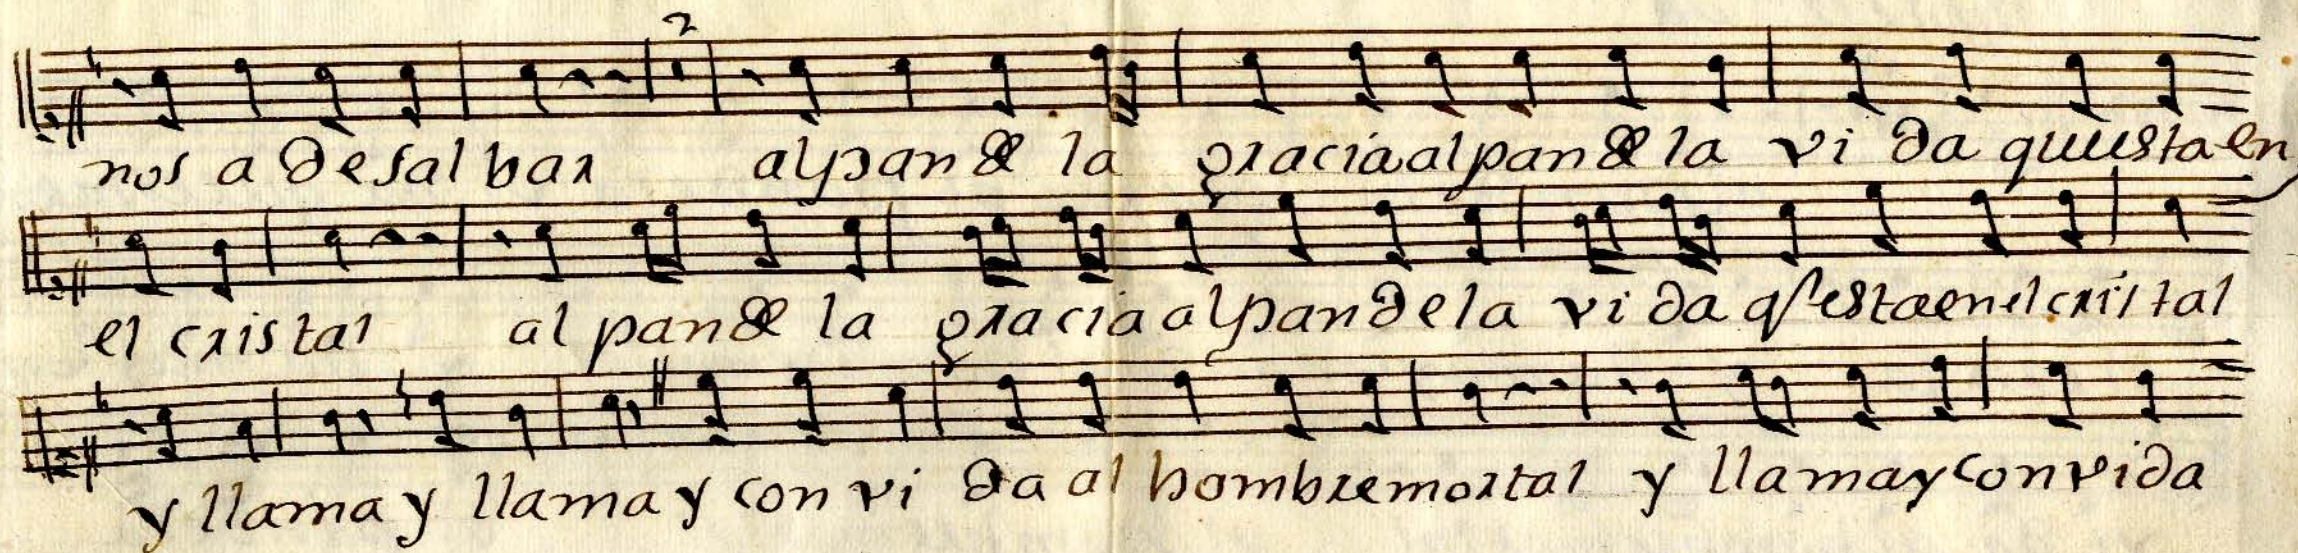 2
nos a de salbar al pan de la gracia al pan de la vi da questa en
el cristal al pan de la gracia al pan de la vi da q esta en el cristal
y llama y llama y con vi da al hombre mortal y llama y convida